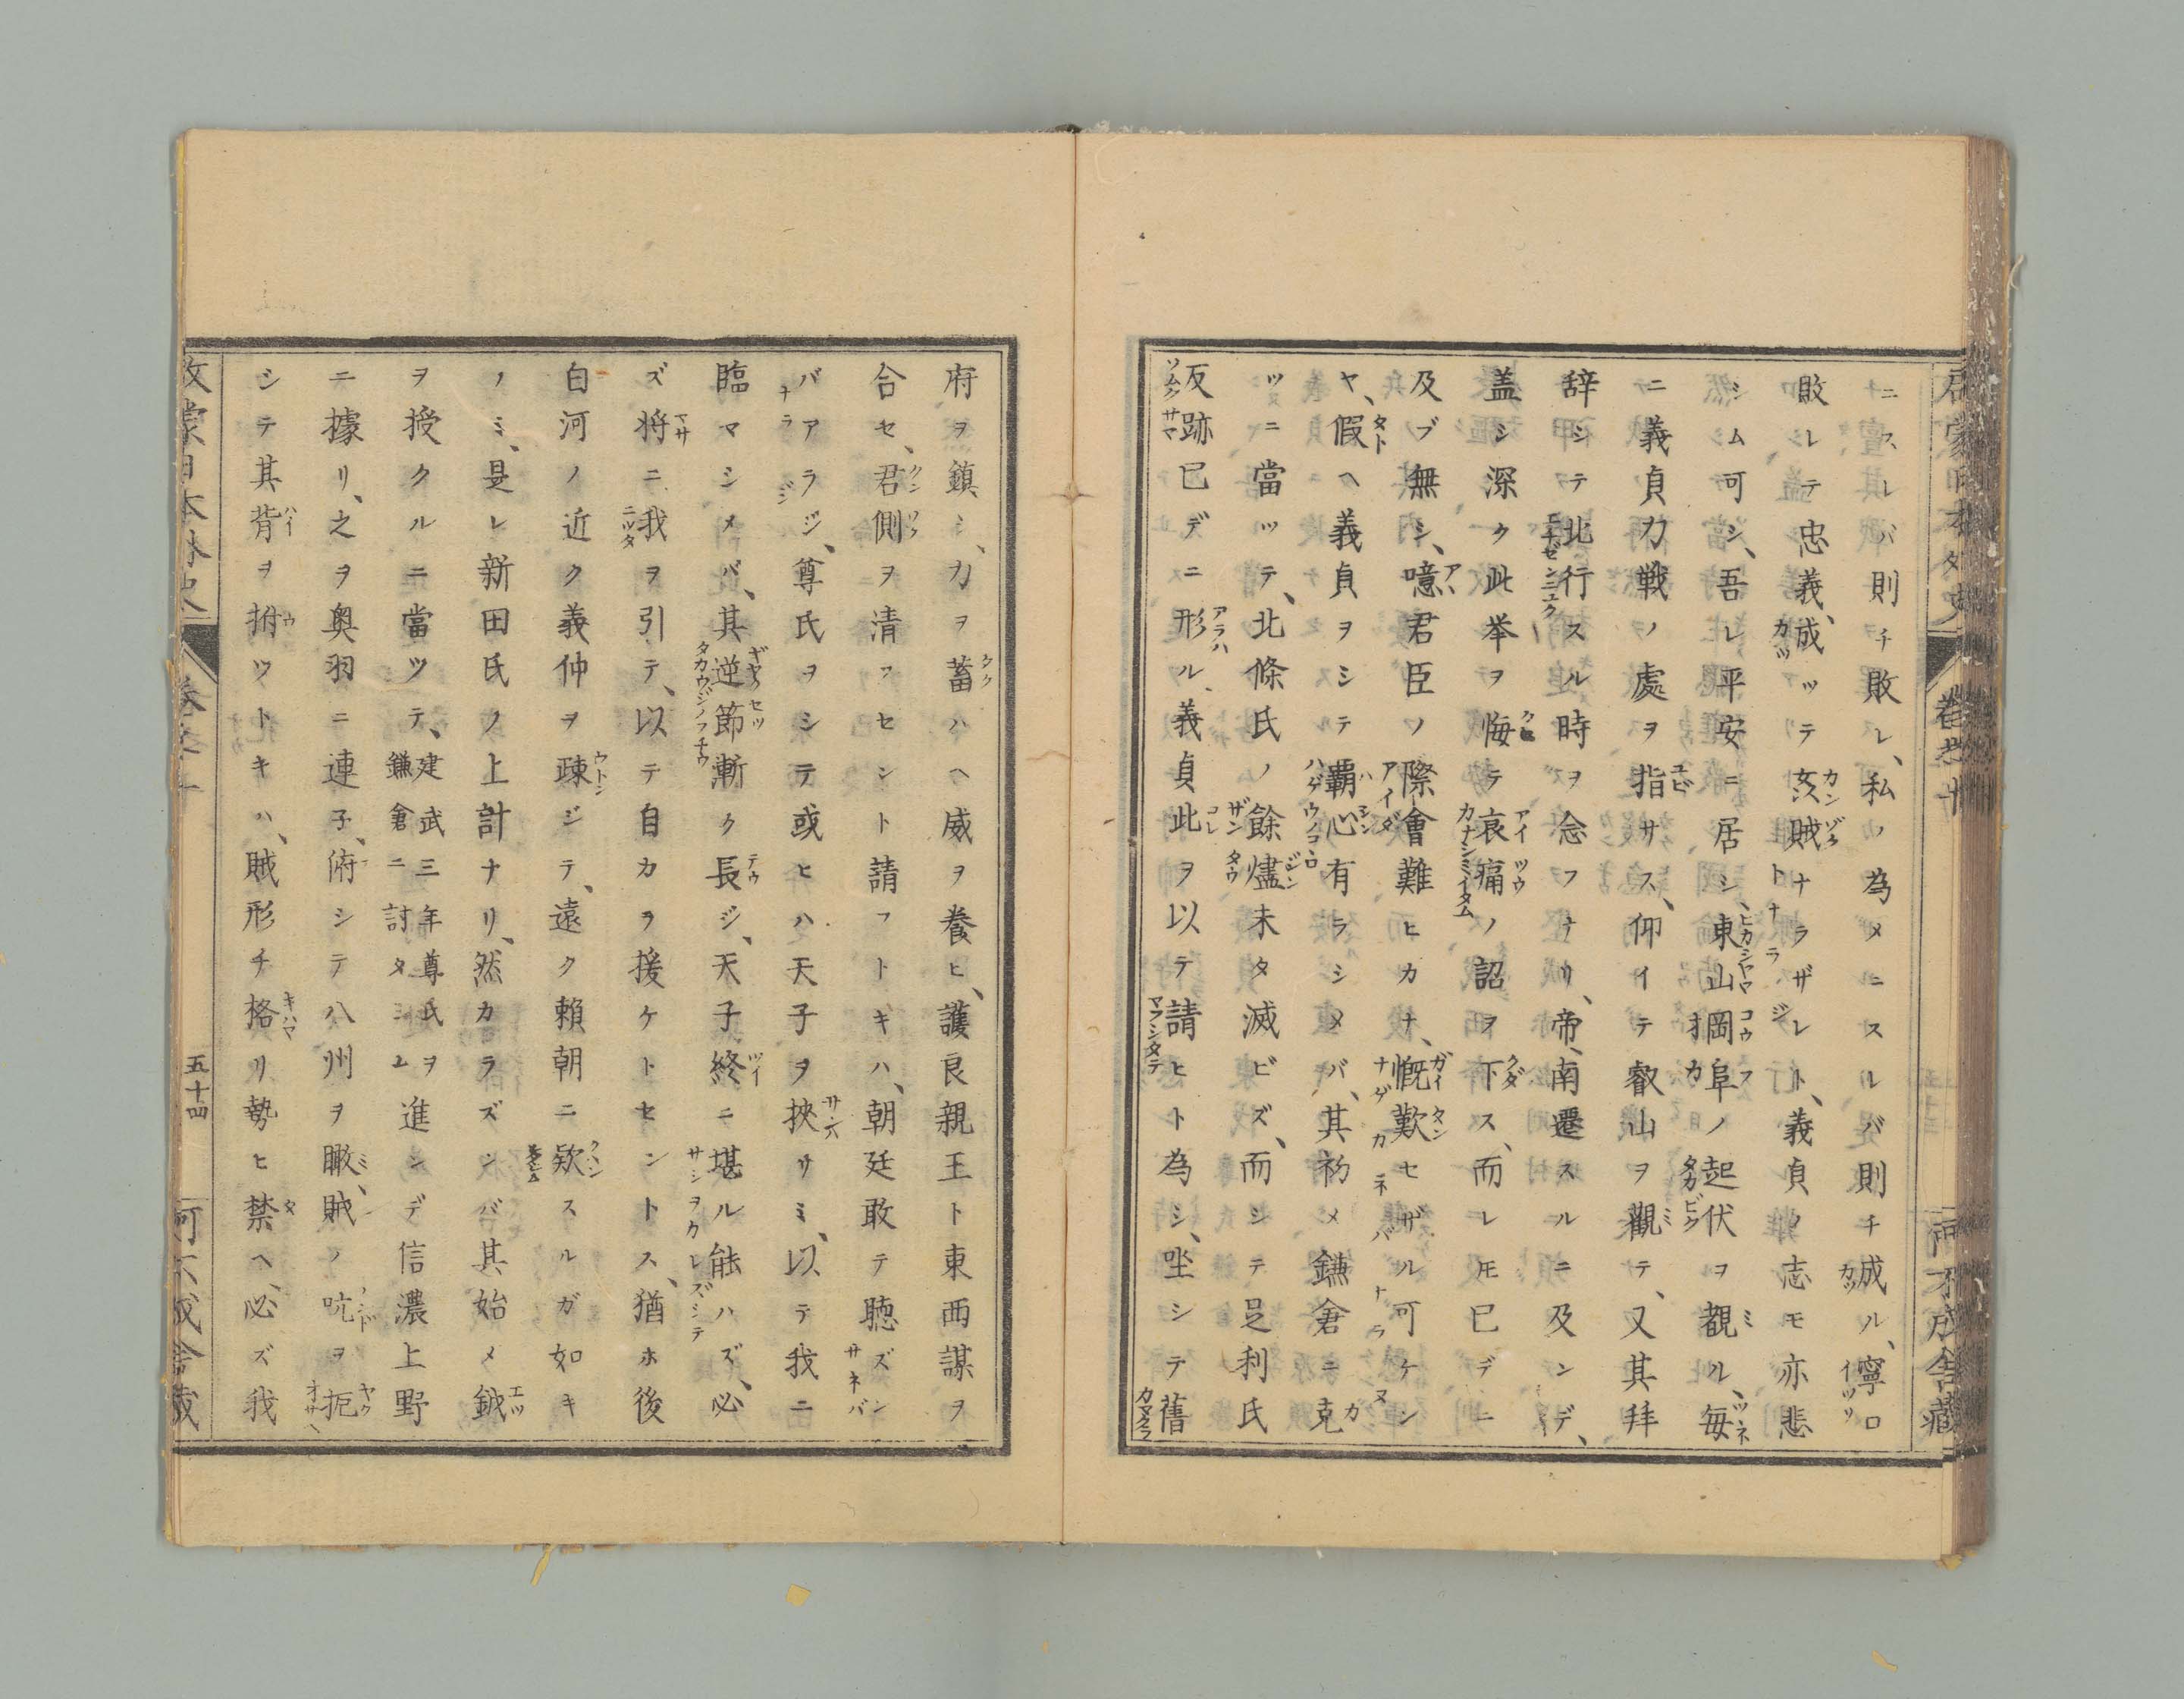 ニスレバ則チ敗レ、私ノ為メニスルバ則チ成ル、寧ロ
敗レテ忠義、成ツテ姦賊ナラザレト、義貞ノ志モ亦悲
シム可シ、吾レ平安ニ居シ、東山岡阜ノ起伏ヲ観ル、毎
ニ義貞力戦ノ處ヲ指サス、仰イテ叡山ヲ觀テ、又其拜
辞シテ北行スル時ヲ念フナリ、帝、南遷スルニ及ンデ、
盖シ深ク此挙ヲ悔テ哀痛ノ詔ヲ下ス、而レ𪜈已デニ
及ブ無シ、噫君臣ノ際會難ヒカナ、慨歎セザル可ケン
ヤ、假ヘ義貞ヲシテ覇心有ラシメバ、其初メ鎌倉ニ克
ツニ當ツテ、北條氏ノ餘燼未タ滅ビズ、而シテ足利氏
反跡已デニ形ル、義貞此ヲ以テ請ヒト為シ、坐シテ舊
府ヲ鎮シ、力ヲ蓄ハヘ威ヲ養ヒ、護良親王ト東西謀ヲ
合セ、君側ヲ清フセント請フトキハ、朝廷敢テ聴ズン
バアラジ、尊氏ヲシテ或ヒハ天子ヲ挾サミ、以テ我ニ
臨マシメバ、其逆節漸ク長ジ、天子終ニ堪ル能ハズ、必
ズ将ニ我ヲ引テ、以テ自カラ援ケトセントス、猶ホ後
白河ノ近ク義仲ヲ疎ジテ、遠ク頼朝ニ欵スルガ如キ
ノミ、是レ新田氏ノ上計ナリ、然カラズンバ其始メ鉞
ヲ授クルニ當ツテ、建武三年尊氏ヲ鎌倉ニ討タシム進ンデ信濃上野
ニ據リ、之ヲ奥羽ニ連子、俯シテ八州ヲ瞰、賊ノ吭ヲ扼
シテ其背ヲ拊ツトキハ、賊形チ格リ勢ヒ禁ヘ、必ズ我
五十四